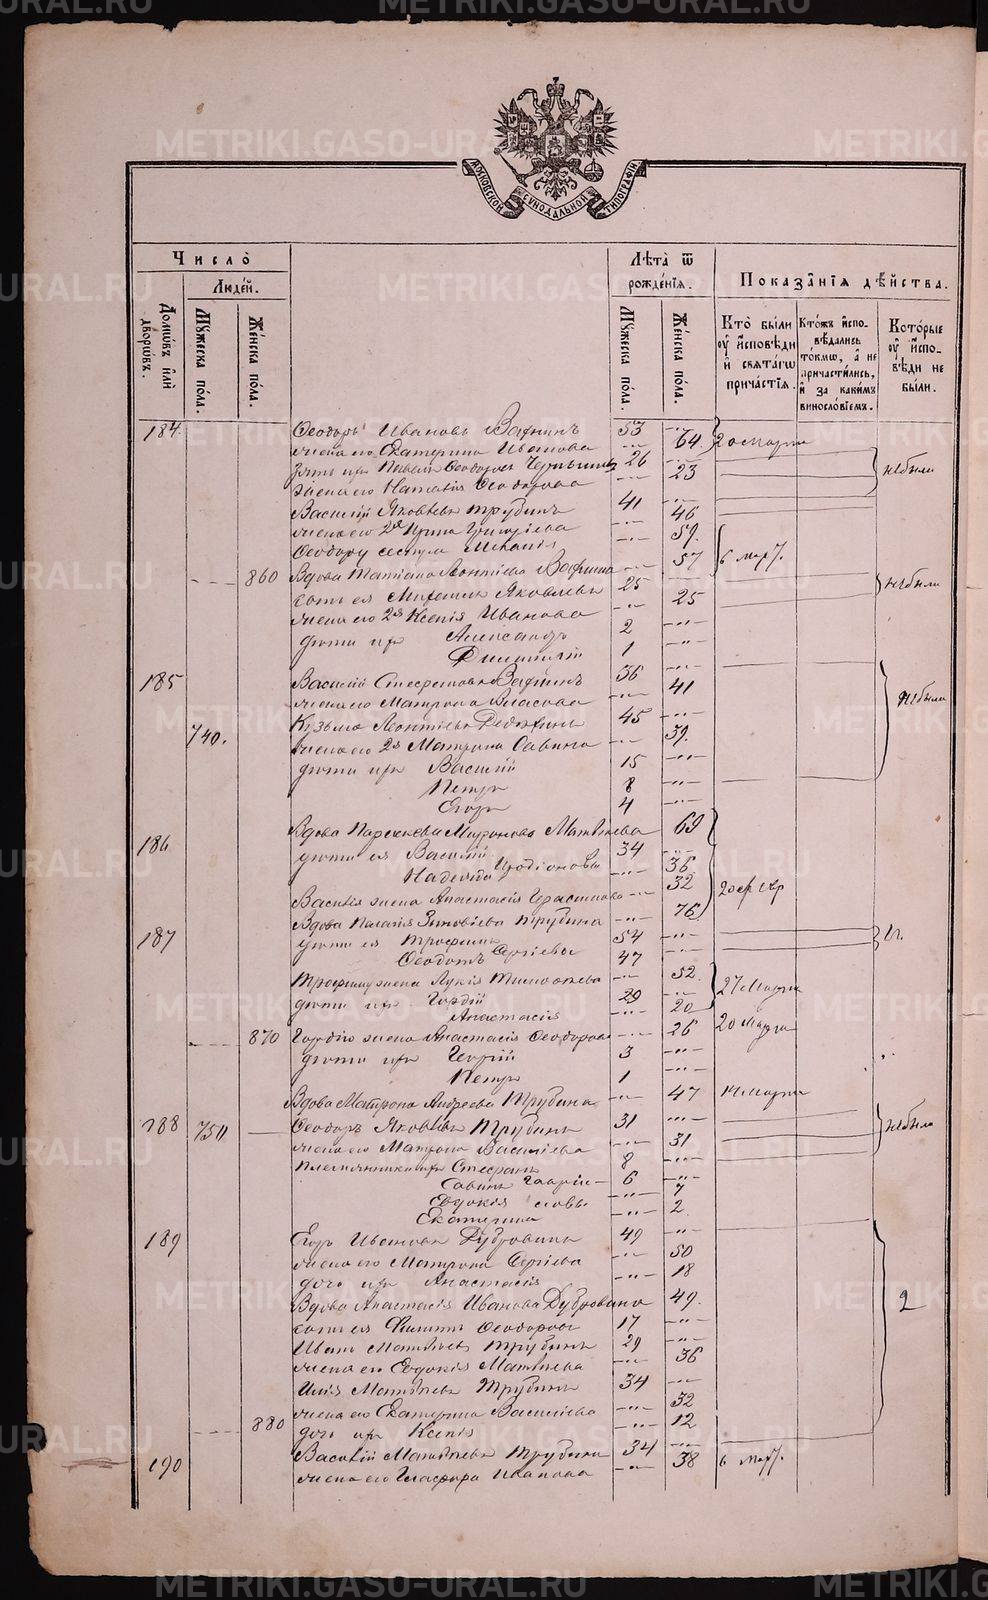 МОСКОВСКОЙ СѴНОДАЛЬНОЙ ТИПОГРАФІИ
Число̀
Людє́й.
Домѡ́въ и҆лѝ дворѡ́въ.
Мꙋ́жєска по́ла.
Жє́нска по́ла.
Лѣ́та ѿ рождє́нїѧ.
Мꙋ́жєска по́ла.
Жє́нска по́ла.
Показа̑нїѧ дѣ́йства.
Кто̀ бы́ли ᲂу҆ и҆сповѣди и҆ свѧта́гѡ прича́стїѧ.
Кто́жъ и҆спо- вѣдались то́кмѡ, а҆ нє причасти́лись, и҆ за каки́мъ винословїємъ.
Кото́рыє ᲂу҆ и҆спо- вѣди нє бы́ли.
184. Ѳеодоръ Ивановъ 53 —"—
жена его Екатерина Иванова —"— 64. 20 марта
зять их Ѳеодоровъ 26 —"—
жена его Наталія Ѳеодорова —"— 23 не были
Василій Яковлевъ Трубинъ 41 —"—
жена его 2я Ирина Григорієва —"— 46
Ѳеодору сестра —"— 59.
860 Вдова Татіана Леонтіева —"— 57 6 мар.
сынъ ея Яковлевъ 25 —"—
жена его 2я Ксенія Иванова —"— 25 не были
дѣти ихъ Александръ 2 —"—
Димитрій 1 —"—
185 Василій 36 —"—
жена его Матрона Власова —"— 41
740. Кузьма Леонтіевъ 45 —"— не были
жена его 2я Матрона Савина —"— 39.
дѣти ихъ Василій 15 —"—
Петръ 8 —"—
Егоръ 4 —"—
186 Вдова Параскева Миронова Матвѣева 69
дѣти ея Василій 34 —"—
Надежда Иродіоновы —"— 36
Василія жена Анастасія Герасимова —"— 32 20 февр
187 Вдова Пелагія Зиновіева Трубина —"— 76.
дѣти ея Трофимъ 54 —"—
Ѳеодотъ Сергіевы 47 —"—
Трофиму жена Лукія Тимоѳеева —"— 52.
дѣти ихъ Гордій 29 —"— 27 Марта
Анастасія —"— 20
870 Гордію жена Анастасія Ѳеодорова —"— 26 20 Марта
дѣти ихъ Георгій 3 —"—
Петръ 1 —"—
Вдова Матрона Андреева Трубина —"— 47 14 Марта
188 750. Ѳеодоръ Яковлевъ Трубинъ 31 —"—
жена его Матрона Василіева —"— 31 не были
племянники их Стефанъ 8 —"—
Савинъ Гавріи- 6 —"—
Евдокія ловы —"— 7
Екатерина —"— 2.
189 Егоръ Ивановъ Дубровинъ 49 —"—
жена его Матрона Сергіева —"— 50
дочь ихъ Анастасія —"— 18
Вдова Анастасія Иванова Дубровина 49. 2
сынъ ея Филиппъ Ѳеодоровъ 17 —"—
Иванъ Матвѣевъ Трубинъ 29 —"—
жена его Евдокія Матвѣева —"— 36
Илія Матвѣевъ Трубинъ 34 —"—
жена его Екатерина Василіева —"— 32
880 дочь ихъ Ксенія —"— 12
190 Василій Матвѣевъ Трубинъ 34 —"—
жена его Гласфира Иванова —"— 38 6 мар.
METRIKI.GASO-URAL.RU